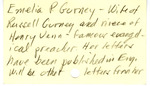 Emelia P Gurney - Wife of
Russell Gurney and niece of
Henry Venn - famous evangel-
ical preacher Her letters
have been published in Eng.
Will be other letters from her